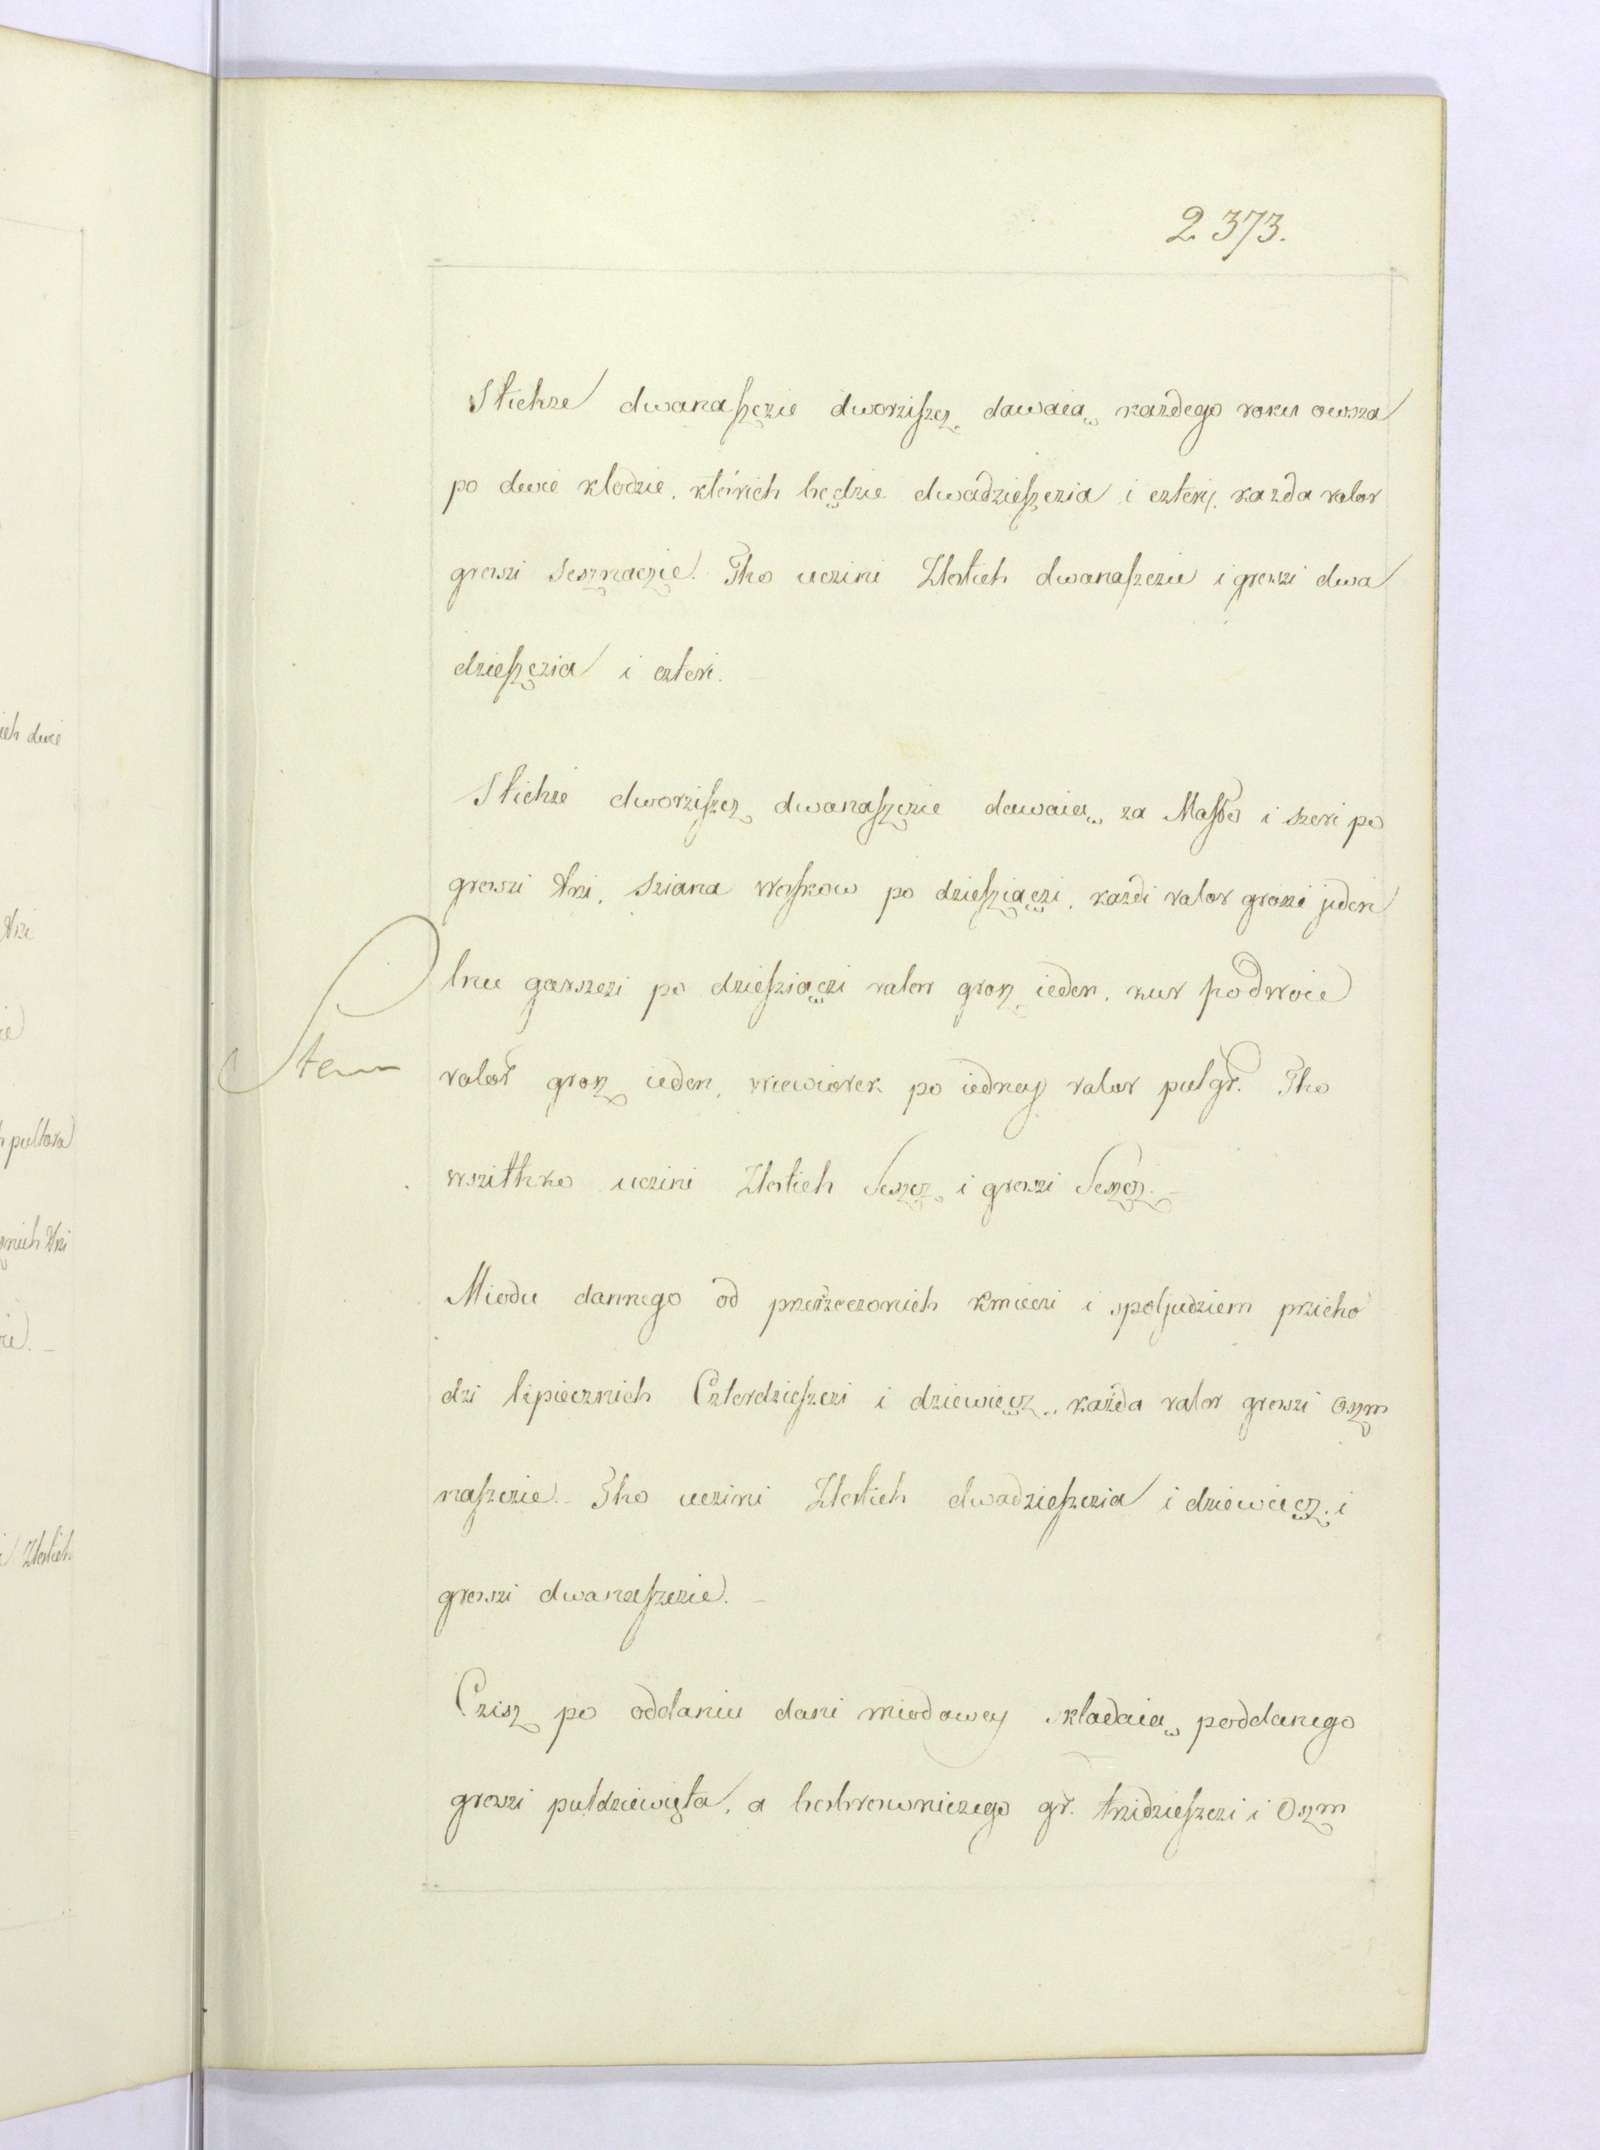 2 373.
Stichże dwanaszczie dworziszcz dawaią każdego roku owsza
po dwie kłodzie, których będzie dwadzieszczia i czteri, każda valor
groszi sesznaczie. Tho uczini Złotich dwanaszczie i groszi dwa
dzieszczia i czteri.
Stichże dworziszcz dwanaszczie dawaią za Masło i szeri po
groszi trzi, sziana woskow po dziesziączi, każdi valor groszi jeden
lnu garszczi po dziesziączi valor grosz ieden, kur po dwoie
Item
valor grosz ieden, wiewiorek po iedney valor puł gr. Tho
wszithko uczini Złotich Seszcz i groszi Seszcz.
Miodu dannego od przerzeczonich kmieczi i spoljudziem przicho
dzi lipiecznich Czterdzieszczi i dziewięcz, każda valor groszi oszm
naszczie. Tho uczini Złotich dwadzieszczia i dziewięcz i
groszi dwanaszczie.
Czisz po oddaniu dani miodowey składaią poddanego
groszi pułdziewięta, a bobrowniczego gr. trzidzieszczi i Oszm
ich dwie
trzi
pułtora
trzi
Złotich